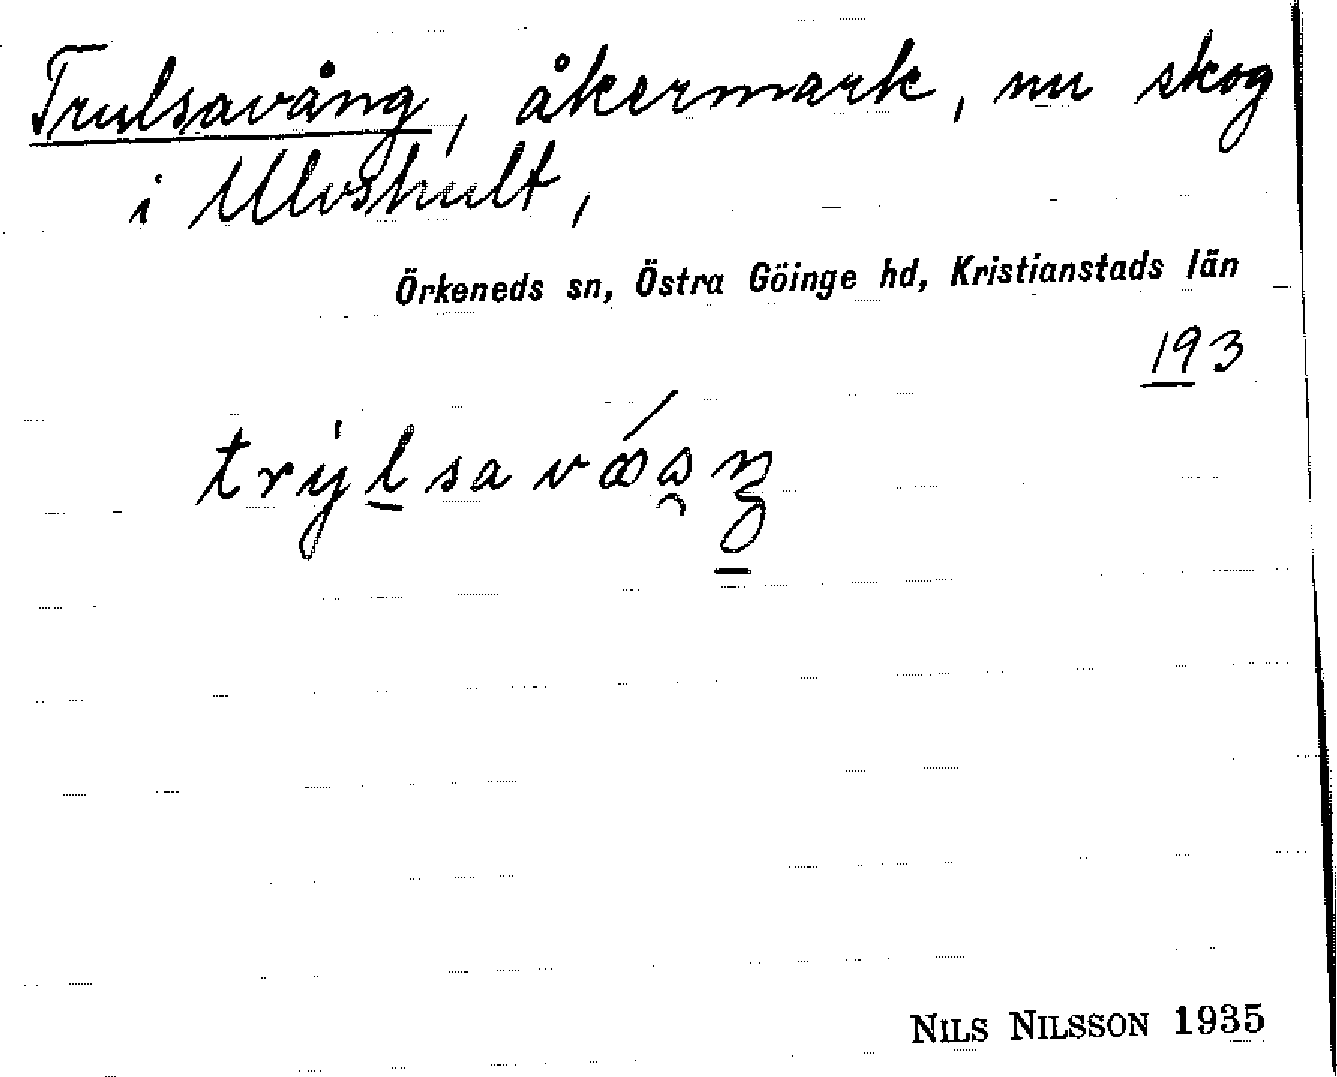 Trulsavång, åkermark, nu skog
i Ulvshult,
Örkeneds sn, Östra Göinge hd, Kristianstads län
193
NILS NILSSON 1935